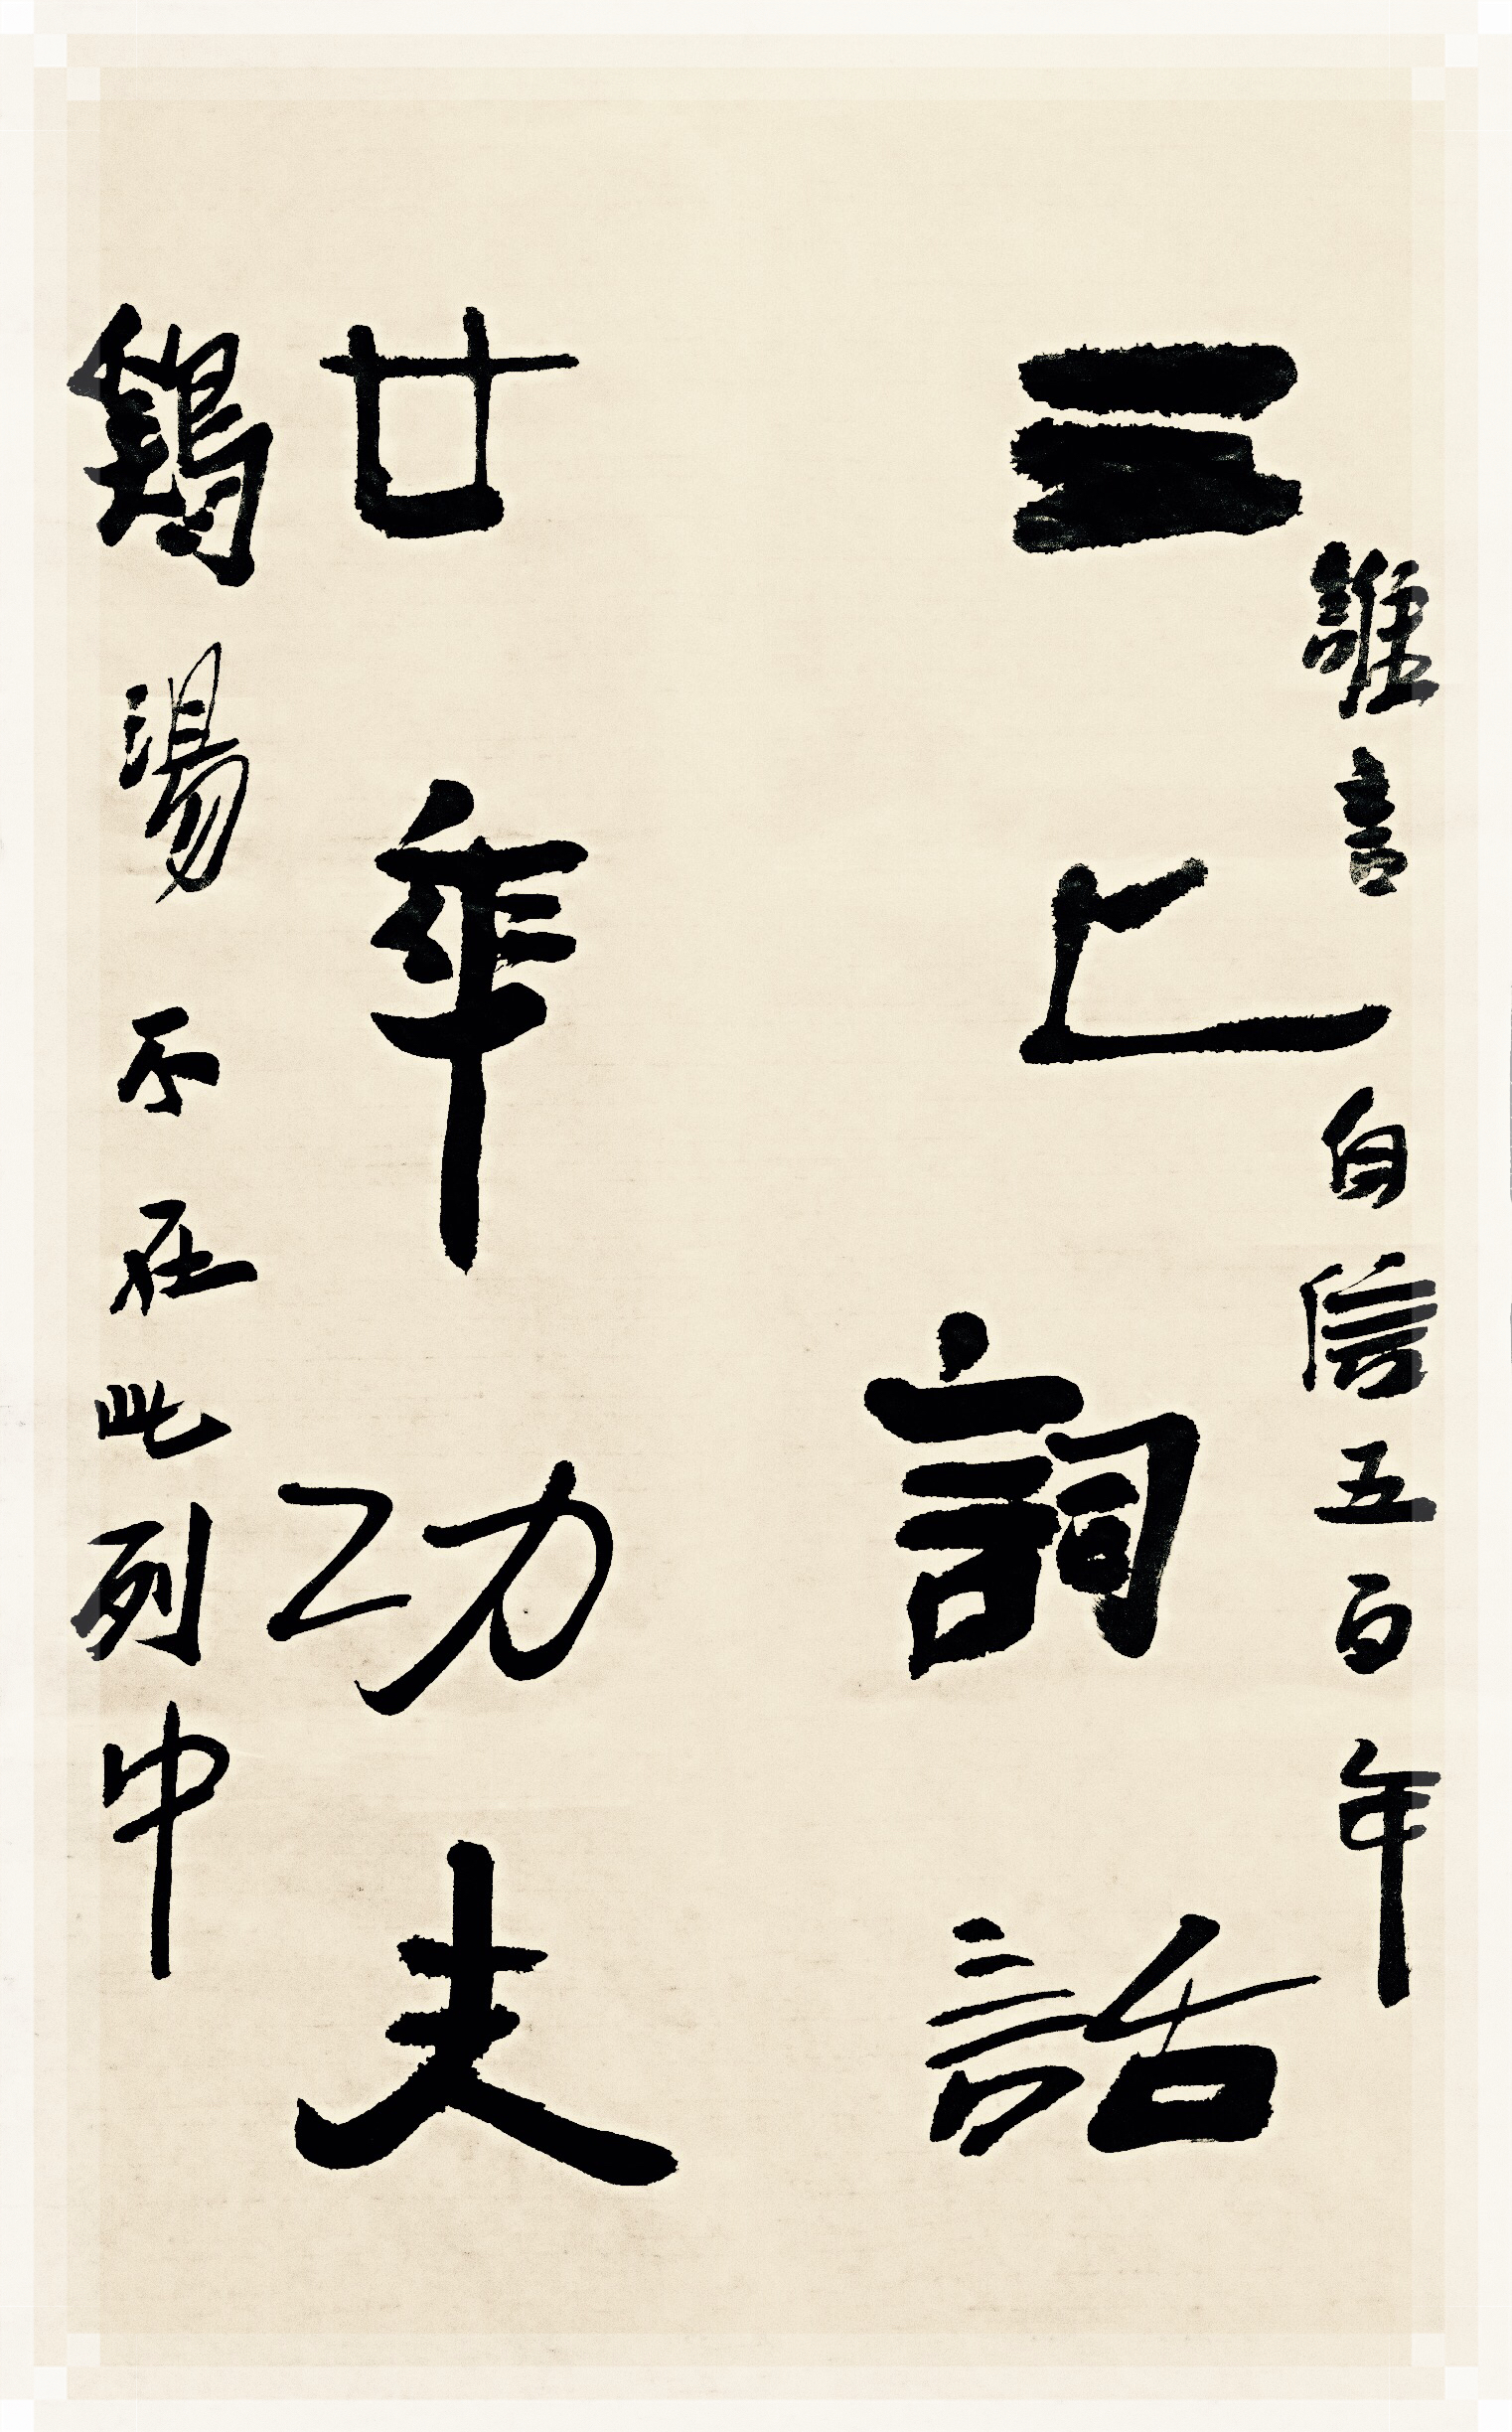 誰言自信五百年
三上詞話
廿年功夫
鷄湯不在此列中